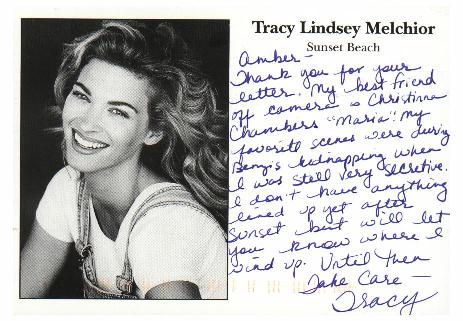 Tracy Lindsey Melchior
Sunset Beach
Amber -
Thank you for your
letter. My best friend
off camera is Christinna
Chambers "Maria". My
favorite scenes were during
Benji's kidnapping when
I was still very secretive.
I don't have anything
lined up yet after
Sunset but will let
you know where I
wind up. Until then
Take Care -
Tracy